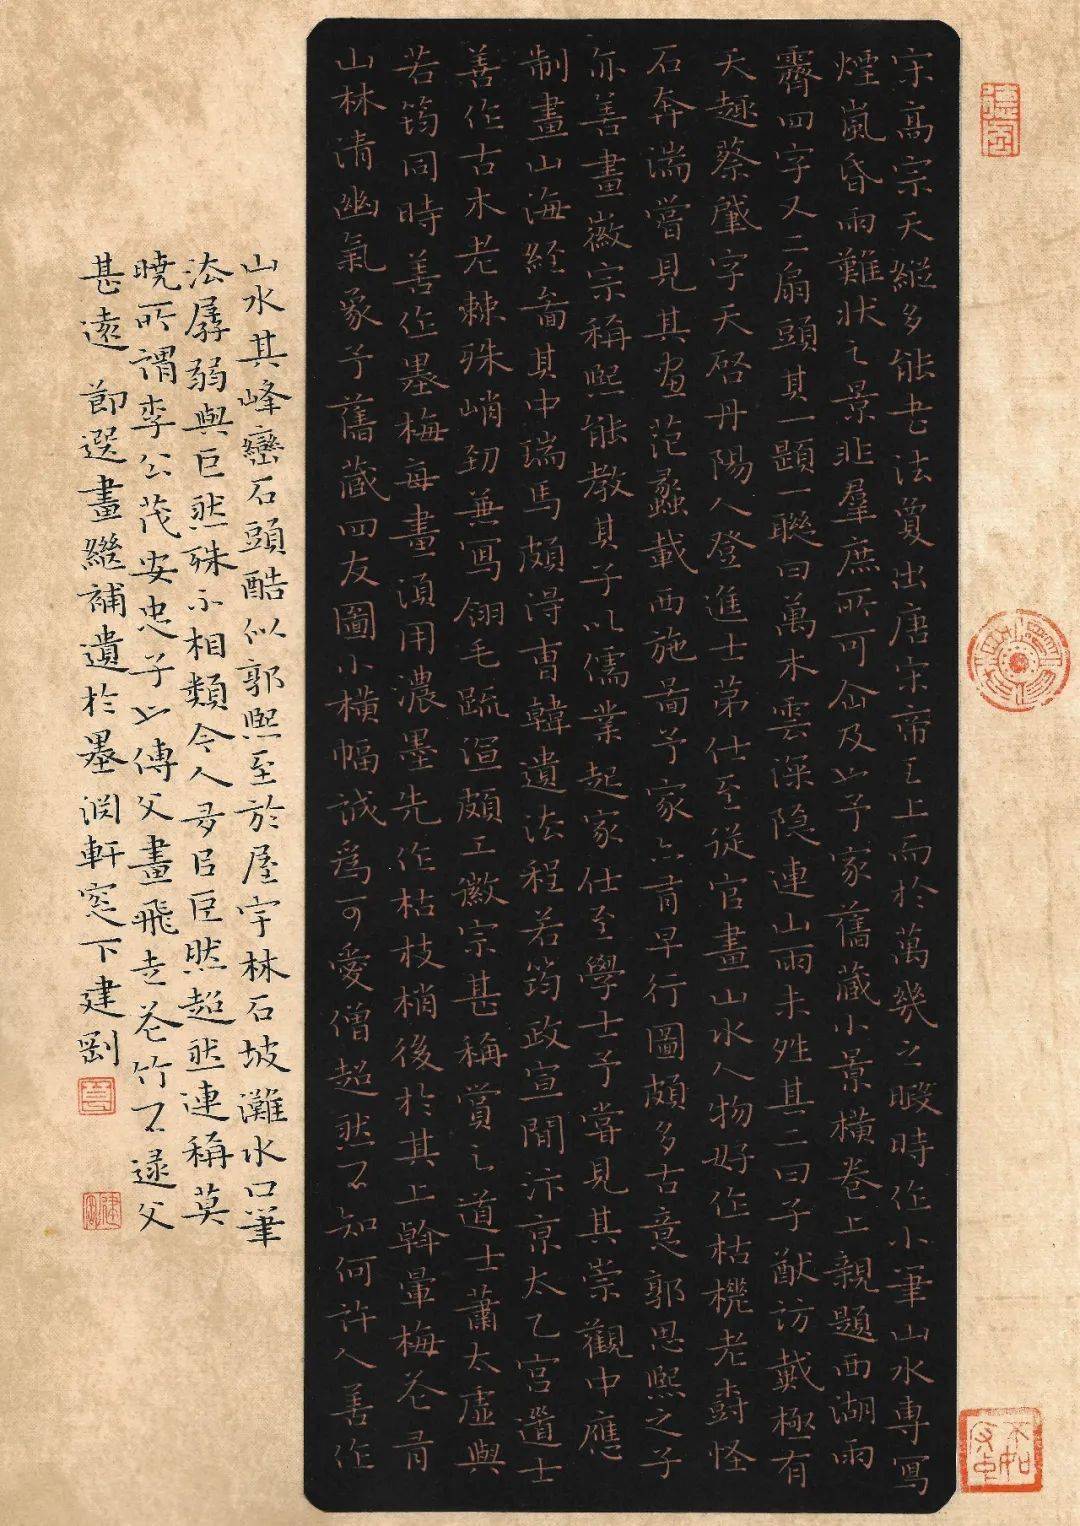 宋高宗天縱多能書法復出唐宋帝王上而於萬幾之暇時作小筆山水專寫
煙嵐昏雨難狀之景非羣庶所可企及也予家舊藏小景橫卷上親題西湖雨
霽四字又二扇頭其一題一聯曰萬木雲深隐連山雨未其二曰子猷訪戴極有
天趣蔡肇字天啓丹陽人登進士第仕至從官畫山水人物好作枯槎老樹怪
石奔湍嘗見其畫范蠡載西施啚予家亦有早行圖頗多古意郭思熙之子
亦善畫徽宗稱熙能教其子以儒業起家仕至學士予嘗見其崇觀中應
制畫山海經啚其中瑞馬頗得曹韓遺法程若筠政宣間汴京太乙宮道士
善作古木老棘殊峭兼寫翎毛疏渲頗工徽宗甚稱賞之道士蕭太虛與
若筠同時善作墨梅每畫須用濃墨先作枯枝梢後於其上斡暈梅花有
山林清幽氣象予舊藏四友圖小橫幅誠爲可愛僧超然不知何許人善作
山水其峰巒石頭酷似郭熙至於屋宇林石坡灘水口筆
法孱弱與巨然殊不相類今人多呂巨然超然連稱莫
曉所謂李公茂安忠子也傳父畫飛走花竹不逮父
甚遠 節選畫繼補遺於墨淵軒窓下建剛
不如